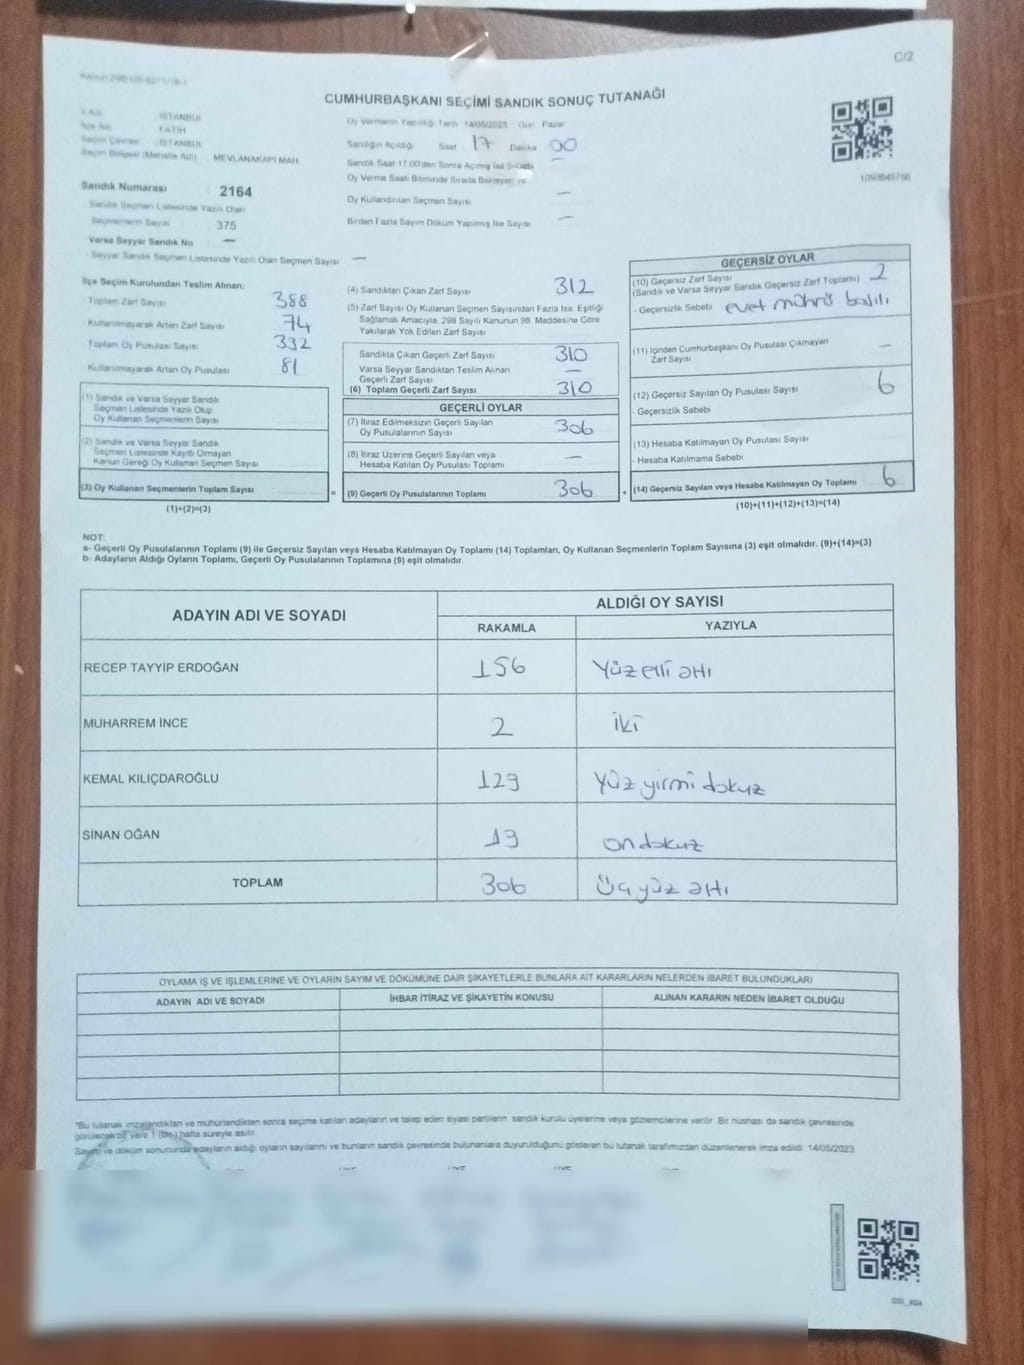 C/2
CUMHURBAŞKANI SEÇİMİ SANDIK SONUÇ TUTANAĞI
İSTANBUL
FATİH
Seçim Çevresi :İSTANBUL
Seçim Bölgesi (Mahalle Adı) : MEVLANAKAPI MAH.
Oy Vermenin Yapıldığı Tarih 14/05/2023 Gün Pazar
Sandığın Açıldığı Saat 17 Dakika 00
Sandık Saat 17.00'den Sonra Açılmış İse Sebebi —
Oy Verme Saati Bitiminde Sırada Bekleyen ve
Oy Kullandırılan Seçmen Sayısı —
Birden Fazla Sayım Döküm Yapılmış İse Sayısı —
1093846756
Sandık Numarası 2164
Sandık Seçmen Listesinde Yazılı Olan
Seçmenlerin Sayısı 375
Varsa Seyyar Sandık No —
Seyyar Sandık Seçmen Listesinde Yazılı Olan Seçmen Sayısı —
İlçe Seçim Kurulundan Teslim Alınan;
Toplam Zarf Sayısı 388
Kullanılmayarak Artan Zarf Sayısı 74
Toplam Oy Pusulası Sayısı 332
Kullanılmayarak Artan Oy Pusulası 81
(1) Sandık ve Varsa Seyyar Sandık
Seçmen Listesinde Yazılı Olup
Oy Kullanan Seçmenlerin Sayısı
(2) Sandık ve Varsa Seyyar Sandık
Seçmen Listesinde Kayıtlı Olmayan
Kanun Gereği Oy Kullanan Seçmen Sayısı
(3) Oy Kullanan Seçmenlerin Toplam Sayısı =
(1)+(2)=(3)
(4) Sandıktan Çıkan Zarf Sayısı 312
(5) Zarf Sayısı Oy Kullanan Seçmen Sayısından Fazla İse, Eşitliği
Sağlamak Amacıyla, 298 Sayılı Kanunun 98. Maddesine Göre
Yakılarak Yok Edilen Zarf Sayısı
Sandıkta Çıkan Geçerli Zarf Sayısı 310
Varsa Seyyar Sandıktan Teslim Alınan
Geçerli Zarf Sayısı —
(6) Toplam Geçerli Zarf Sayısı 310
GEÇERLİ OYLAR
(7) İtiraz Edilmeksizin Geçerli Sayılan
Oy Pusulalarının Sayısı 306
(8) İtiraz Üzerine Geçerli Sayılan veya
Hesaba Katılan Oy Pusulası Toplamı —
(9) Geçerli Oy Pusulalarının Toplamı 306 +
GEÇERSİZ OYLAR
(10) Geçersiz Zarf Sayısı
(Sandık ve Varsa Seyyar Sandık Geçersiz Zarf Toplamı) 2
- Geçersizlik Sebebi evet mührü basılı
(11) İçinden Cumhurbaşkanı Oy Pusulası Çıkmayan
Zarf Sayısı —
(12) Geçersiz Sayılan Oy Pusulası Sayısı 6
- Geçersizlik Sebebi
(13) Hesaba Katılmayan Oy Pusulası Sayısı
- Hesaba Katılmama Sebebi
(14) Geçersiz Sayılan veya Hesaba Katılmayan Oy Toplamı 6
(10)+(11)+(12)+(13)=(14)
NOT:
a- Geçerli Oy Pusulalarının Toplamı (9) ile Geçersiz Sayılan veya Hesaba Katılmayan Oy Toplamı (14) Toplamları, Oy Kullanan Seçmenlerin Toplam Sayısına (3) eşit olmalıdır. (9)+(14)=(3)
b- Adayların Aldığı Oyların Toplamı, Geçerli Oy Pusulalarının Toplamına (9) eşit olmalıdır.
ADAYIN ADI VE SOYADI ALDIĞI OY SAYISI
RAKAMLA YAZIYLA
RECEP TAYYİP ERDOĞAN 156 Yüz elli altı
MUHARREM İNCE 2 iki
KEMAL KILIÇDAROĞLU 129 Yüz yirmi dokuz
SİNAN OĞAN 19 on dokuz
TOPLAM 306 Üç yüz altı
OYLAMA İŞ VE İŞLEMLERİNE VE OYLARIN SAYIM VE DÖKÜMÜNE DAİR ŞİKAYETLERLE BUNLARA AİT KARARLARIN NELERDEN İBARET BULUNDUKLARI
ADAYIN ADI VE SOYADI İHBAR İTİRAZ VE ŞİKAYETİN KONUSU ALINAN KARARIN NEDEN İBARET OLDUĞU
*Bu tutanak imzalandıktan ve mühürlendikten sonra seçime katılan adayların ve talep eden siyasi partilerin sandık kurulu üyelerine veya gözlemcilerine verilir. Bir nüshası da sandık çevresinde
görülecek bir yere 1 (bir) hafta süreyle asılır.
Sayım ve döküm sonucunda adayların aldığı oyların sayılarını ve bunların sandık çevresinde bulunanlara duyurulduğunu gösteren bu tutanak tarafımızdan düzenlenerek imza edildi. 14/05/2023